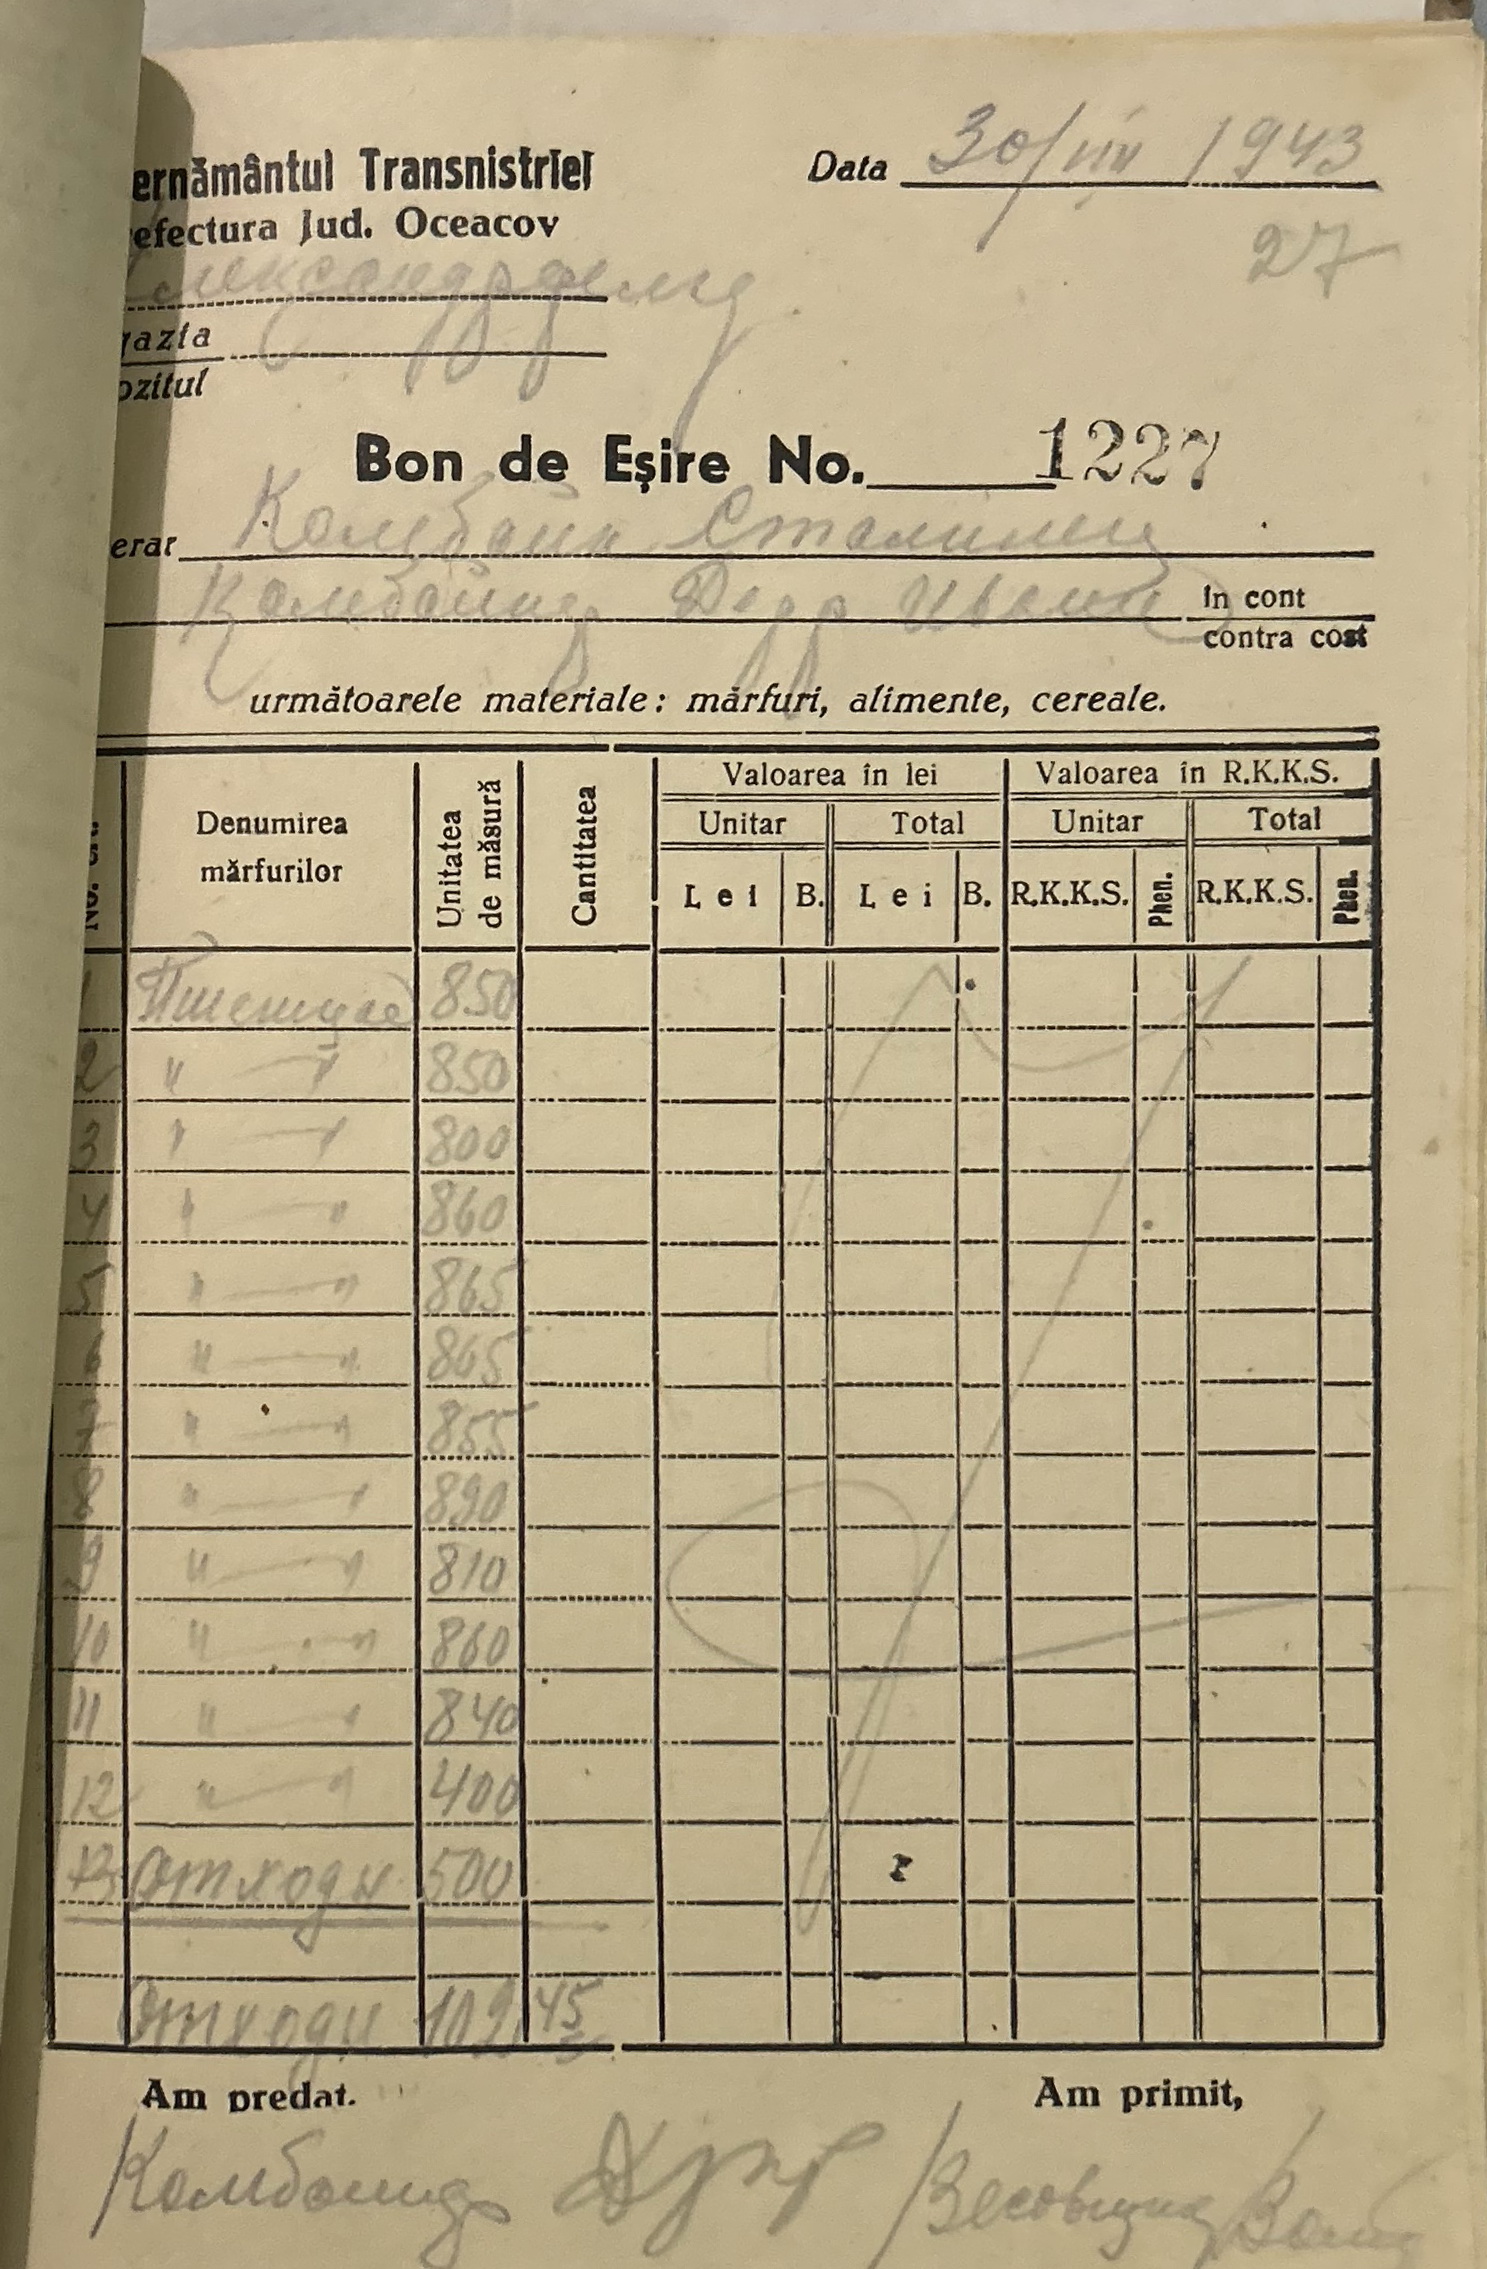 ernământul Transnistriei
Data 30/VIII 1943
efectura Jud. Oceacov
27
Александрфельд
gazia
ozitul
Bon de Eșire No. 1227
erar Комбайн Сталинец
Комбайнер Иван
în cont
contra cost
următoarele materiale: mărfuri, alimente, cereale.
No. crt. Denumirea mărfurilor Unitatea de măsură Cantitatea Valoarea în lei Valoarea în R.K.K.S.
Unitar Total Unitar Total
Lei B. Lei B. R.K.K.S. Phen. R.K.K.S. Phen.
1 Пшеницa 850
2 " — " 850
3 " — " 800
4 " — " 860
5 " — " 865
6 " — " 865
7 " — " 855
8 " — " 890
9 " — " 810
10 " — " 860
11 " — " 840
12 " — " 400
13 Отходы 500
Отходы 10245
Am predat. Am primit,
Комбайнер Весовщик